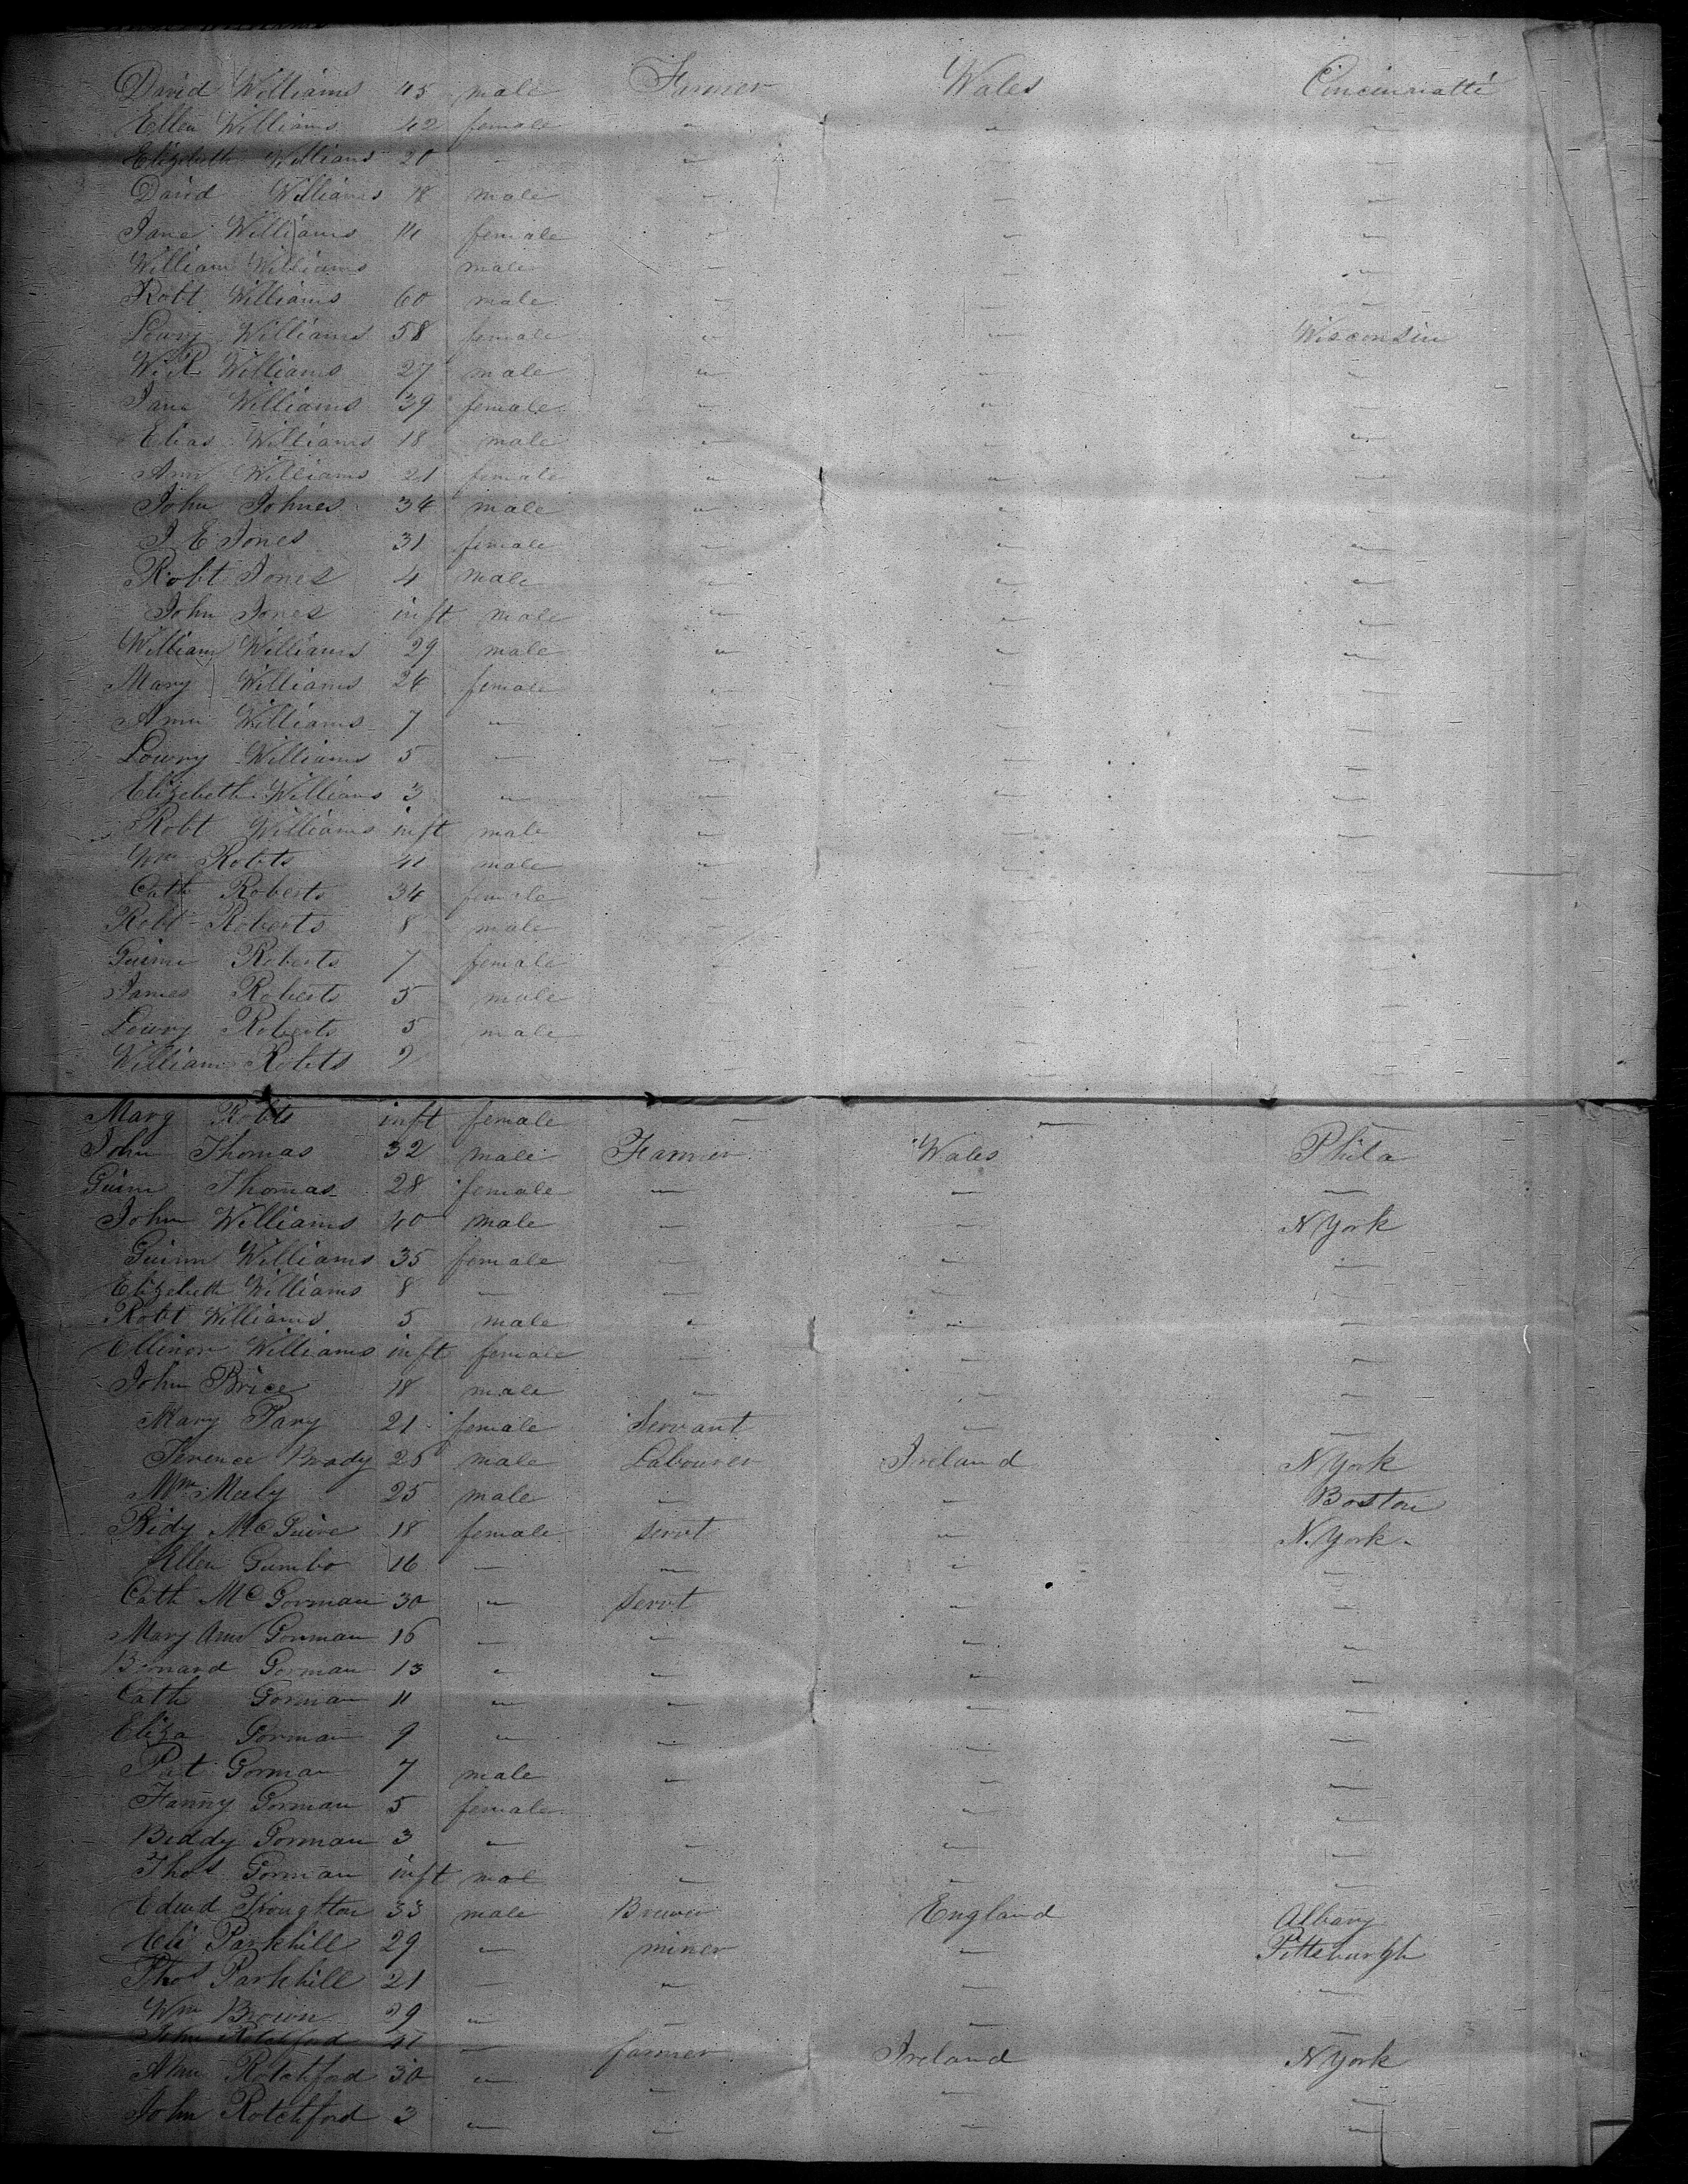 David Williams 45 male Farmer Wales Cincinnatti
Ellen Williams 42 female " " "
Elizebeth Williams 20 " " " "
David Williams 18 male " " "
Jane Williams 14 female " " "
William Williams male " " "
Robt Williams 60 male " " "
Lowry Williams 58 female " " Wisconsin
W. R Williams 27 male " " "
Jane Williams 39 female " " "
Elias Williams 18 male " " "
Ann Williams 21 female " " "
John Johnes 34 male " " "
J E Jones 31 female " " "
Robt Jones 4 male " " "
John Jones inft male " " "
William Williams 29 male " " "
Mary Williams 24 female " " "
Ann Williams 7 " " " "
Lowry Williams 5 " " " "
Elizebeth Williams 3 " " " "
Robt Williams inft male " " "
Wm Robts 41 male " " "
Cath Roberts 34 female " " "
Robt Roberts 8 male " " "
Guinn Roberts 7 female " " "
James Roberts 5 male " " "
Lowry Roberts 5 male " " "
William Robts 2 " " "
Marg Robts inft female " " "
John Thomas 32 male Farmer Wales Phila
Guinn Thomas 28 female " " "
John Williams 40 male " " N York
Guinn Williams 35 female " " "
Elizebeth Williams 8 " " " "
Robt Williams 5 male " " "
Ellinor Williams inft female " " "
John Brice 18 male " " "
Mary Pary 21 female Servant " "
Terence Brady 26 male Labourer Ireland N York
Wm Meely 25 male " " Boston
Bidy McGuire 18 female servt " N. York
Ellen Gumbo 16 " " " "
Cath McGorman 30 " Servt " "
Mary Ann Gorman 16 " " " "
Bernard Gorman 13 " " " "
Cath Gorman 11 " " " "
Eliza Gorman 9 " " " "
Pat Gorman 7 male " " "
Fanny Gorman 5 female " "
Biddy Gorman 3 " " " "
Thos Gorman inft mal " " "
Edwd 33 male Brewer England Albany
Eli Parkhill 29 " miner " Pittsburgh
Thos Parkhill 21 " " " "
Wm Brown 29 " " " "
John Rotchford 41 " farmer Ireland N York
Ann Rotchford 30 " " " "
John Rotchford 3 " " " "